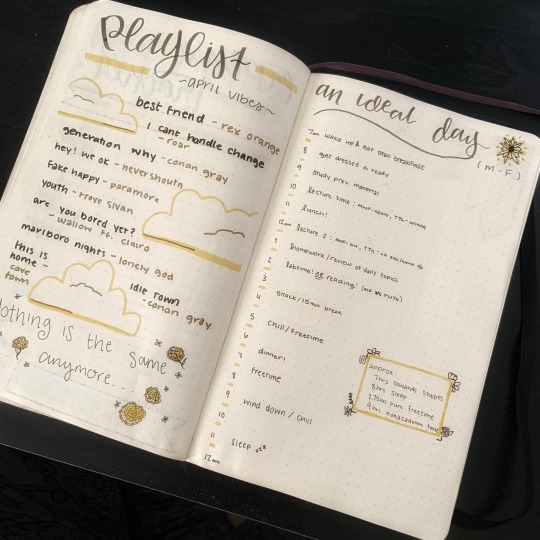 playlist
~april vibes~
best friend - rex orange
i cant handle change
- roar
generation why - conan gray
hey! we ok - nevershoutn
fake happy - paramore
youth - troye sivan
are you bored yet?
- wallow ft. clairo
marlboro nights - lonely god
this is
home -
cave
town
idle town
- conan gray
Nothing is the same
anymore...
an ideal day
(M-F)
7am wake up & eat small breakfast
8 get dressed & ready
9 study prev. material
10 lecture time:
11 lunch!
12pm lecture 2:
1 homework/review of daily topics
2 labtime! or reading!
3
4 snack/15min break
5 chill/freetime
6
7 dinner!
8 freetime
9
10 wind down / chill
11
12am sleep zzz
approx:
7hrs towards studies
8hrs sleep
pure freetime
4hrs nonacademic time